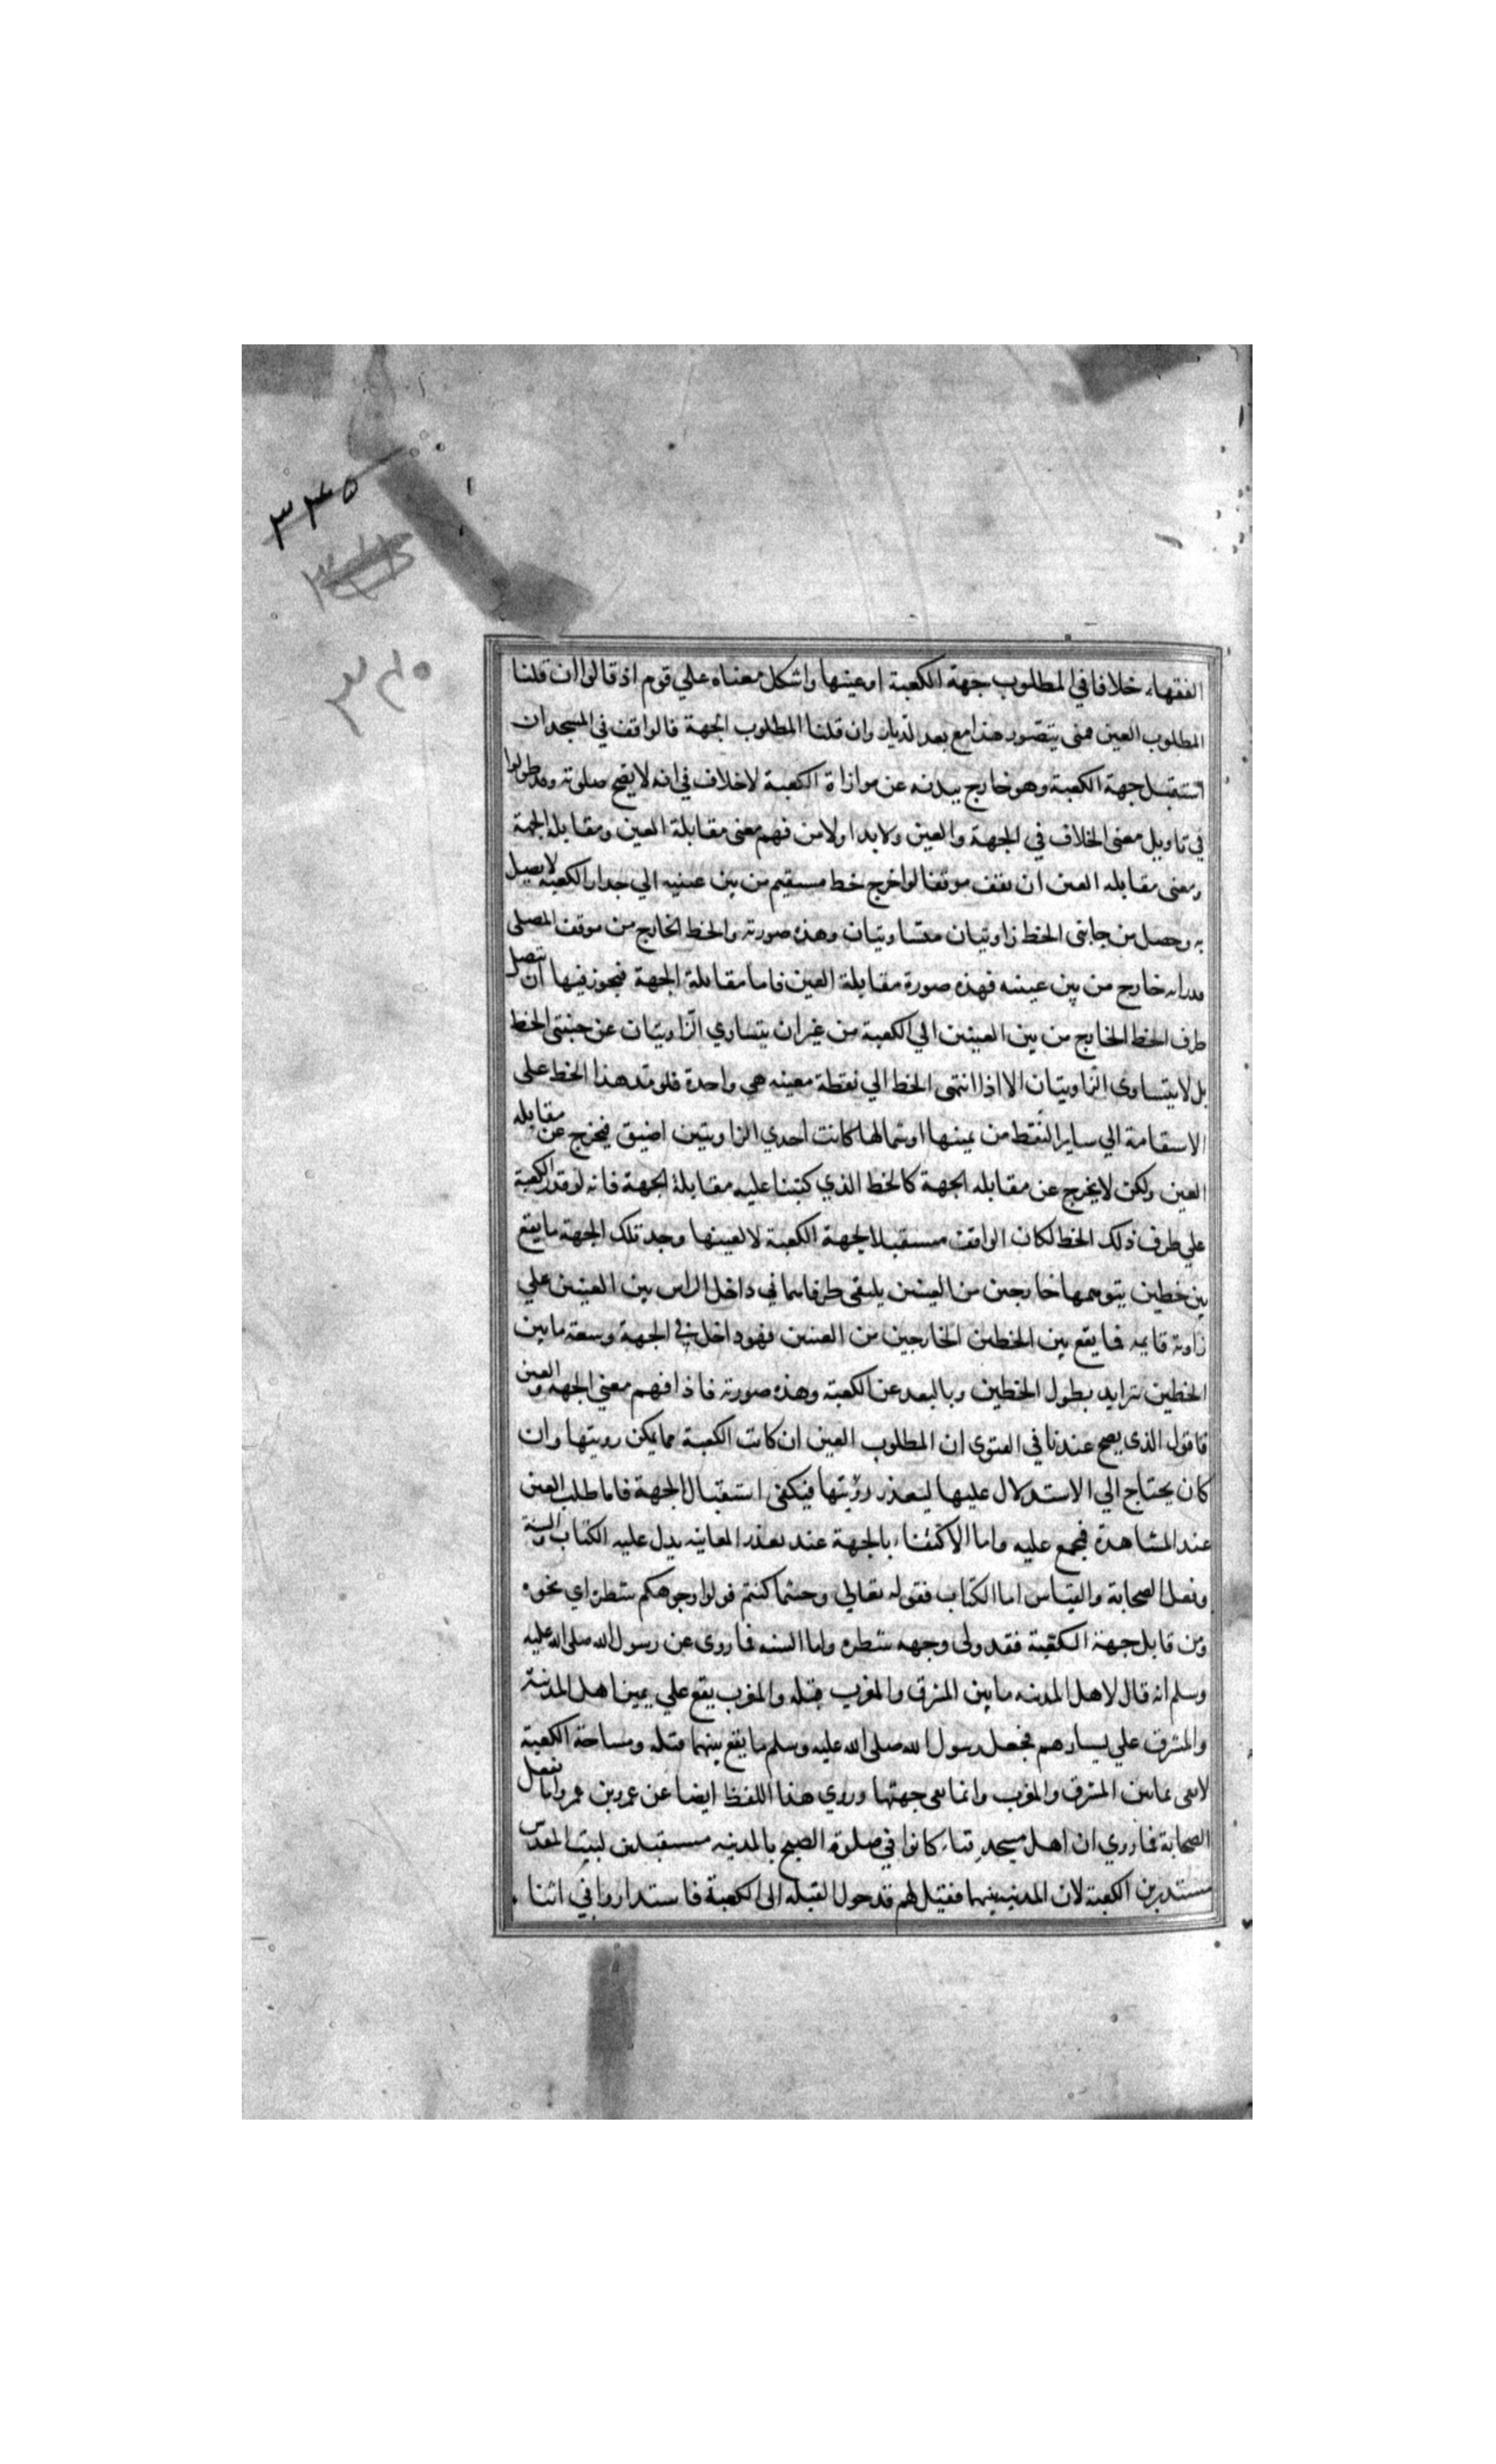 ٣٤٥
٣٤٥
الفقهاء خلافا في المطلوب جهة الكعبة او عينها واشكل معناه علي قوم اذ قالوا ان قلنا
المطلوب العين فمتى يتصور هذا مع بعد الديار وان قلنا المطلوب الجهة فالواقف في المسجد ان
استقبل جهة الكعبة وهو خارج ببدنه عن موازاة الكعبة لا خلاف في انه لا يصح صلوته وقد طولوا
في تاويل معنى الخلاف في الجهة والعين ولا بد اولا من فهم معنى مقابلة العين ومقابلة الجهة
ومعنى مقابله العين ان يقف موقفا لو اخرج خط مستقيم من بين عينيه الي جدار الكعبه لا يصل
به وحصل من جانبى الخط زاويتان متساويتان وهذه صورته والخط الخارج من موقف المصلى
يقدر انه خارج من بين عينيه فهذه صورة مقابلة العين فاما مقابلة الجهة فيجوز فيها ان يتصل
طرف الخط الخارج من بين العينين الي الكعبة من غير ان يتساوي الزاويتان عن جنبتى الخط
بل لا يتساوى الزاويتان الا اذا انتهى الخط الي نقطة معينه هي واحدة فلو مد هذا الخط على
الاستقامة الي ساير النقط من يمينها او شمالها كانت احدي الزاويتين اضيق فيخرج عن مقابله
العين ولكن لا يخرج عن مقابله الجهة كالخط الذي كتبنا عليه مقابلة الجهة فانه لو قدر الكعبة
علي طرف ذلك الخط لكان الواقف مستقبلا لجهة الكعبة لا لعينها وحد تلك الجهة ما يقع
بين خطين يتوهمها خارجين من العينين يلتقى طرفاهما في داخل الراس بين العينين علي
زاوية قايمه فما يقع بين الخطين الخارجين من العينين فهو داخل في الجهة وسعة ما بين
الخطين تزايد بطول الخطين وبالبعد عن الكعبة وهذه صورته فاذا فهم معني الجهه والعين
فاقول الذى يصح عندنا في الفتوى ان المطلوب العين ان كانت الكعبة مما يمكن رويتها وان
كان يحتاج الي الاستدلال عليها ليتعذر رؤيتها فيكفى استقبال الجهة فاما طلب العين
عند المشاهدة فجمع عليه واما الاكتفاء بالجهة عند تعذر المعاينه يدل عليه الكتاب والسنة
وفعل الصحابة والقياس اما الكتاب فقوله تعالي وحيثما كنتم فولوا وجوهكم شطره اي نحوه
ومن قابل جهة الكعبة فقد ولى وجهه شطره واما السنه فما روى عن رسول الله صلى الله عليه
وسلم انه قال لاهل المدينه ما بين المشرق والمغرب قبله والمغرب يقع علي يمين اهل المدينة
والمشرق علي يسارهم فجعل رسول الله صلى الله عليه وسلم ما يقع بينهما قبله ومساحة الكعبة
لا تفى بما بين المشرق والمغرب وانما يفى جهتها وروي هذا اللفظ ايضا عن عمر وبن عمر واما فعل
الصحابة فما روي ان اهل مسجد قباء كانوا في صلوة الصبح بالمدينه مستقبلين لبيت المقدس
مستدبرين الكعبة لان المدينه بينهما فقيل لهم قد حول القبله الى الكعبة فاستداروا في اثنا